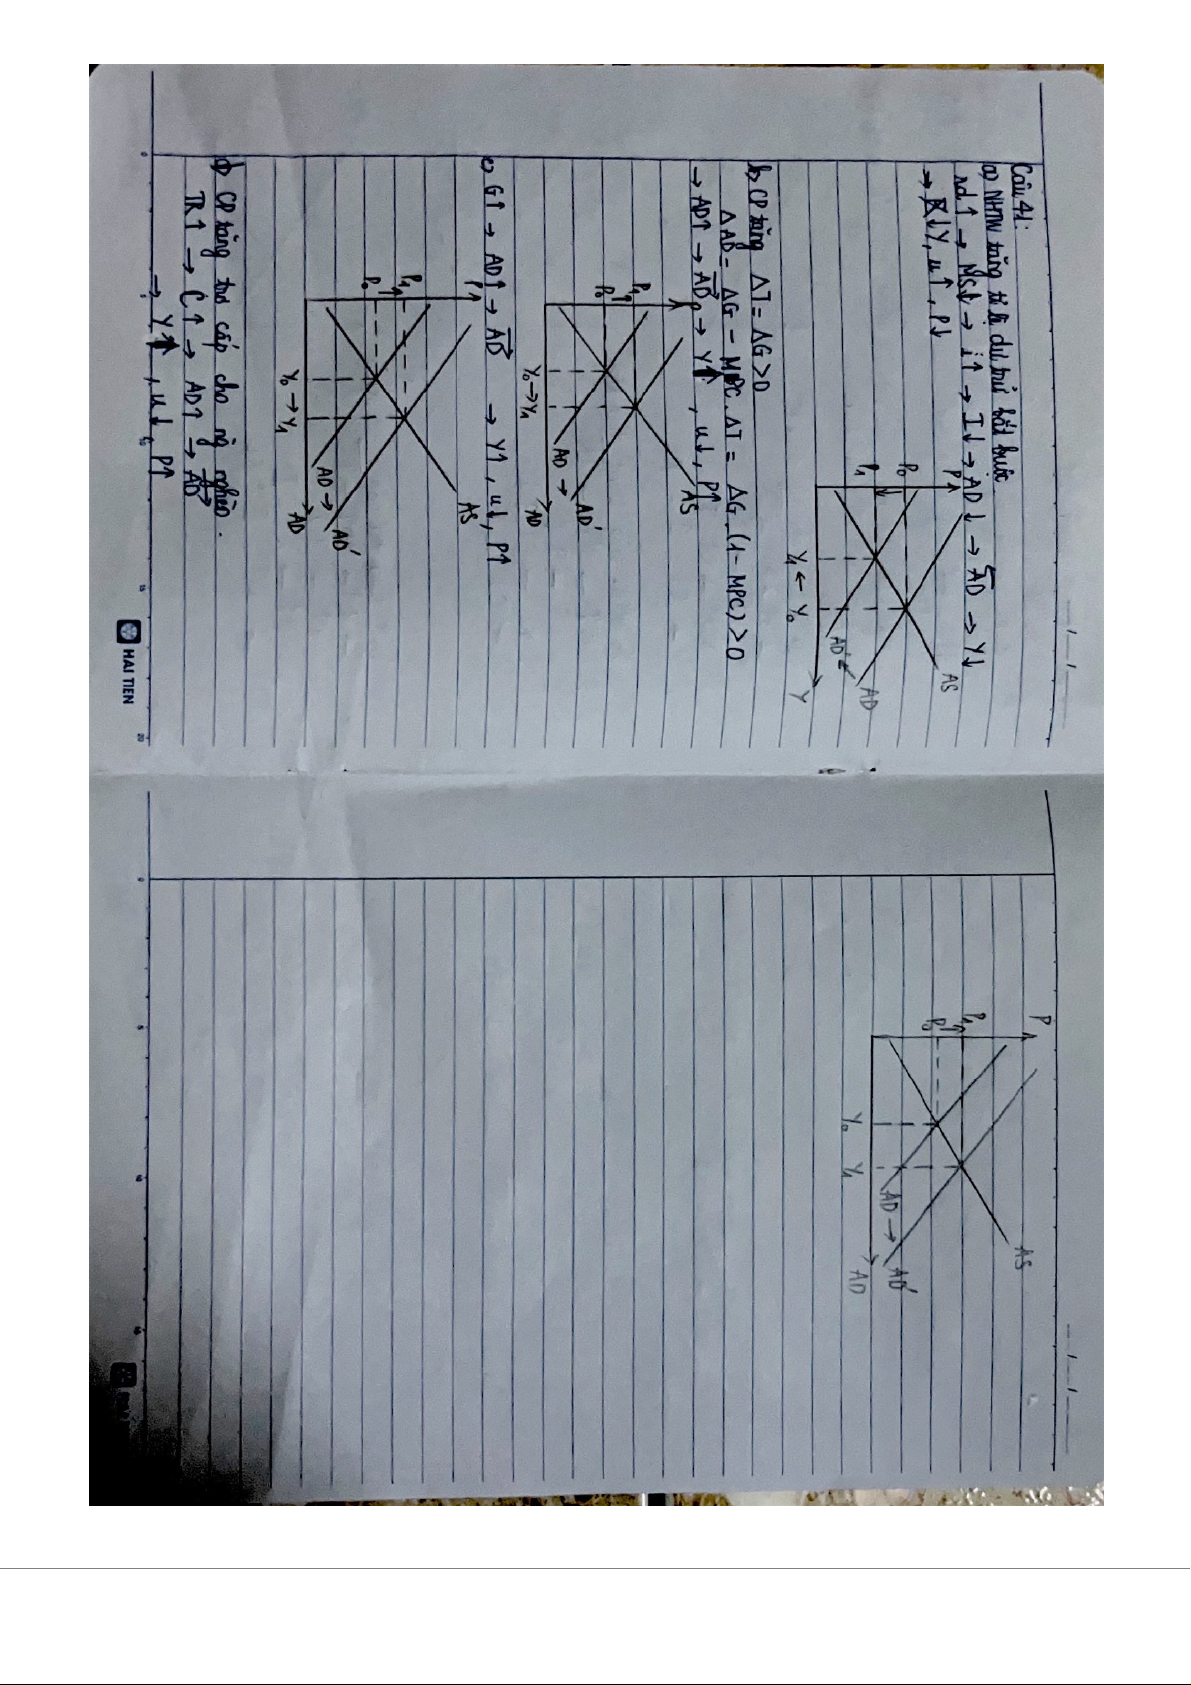 Câu 41:
a) NHTW tăng tỉ lệ dự trữ bắt buộc
rd↑ → MS↓ → i↑ → I↓ → AD↓ → AD → Y↓
→ Y, u↑, P↓
P
P₀
P₁
Y₁ ← Y₀
Y
AS
AD
AD'
b) CP tăng ΔT = ΔG > 0
ΔAD = ΔG - MPC.ΔT = ΔG.(1 - MPC) > 0
→ AD↑ → AD → Y↑, u↓, P↑
P
P₁
P₀
Y₀ → Y₁
AD
AS
AD → AD'
c) G↑ → AD↑ → AD → Y↑, u↓, P↑
P
P₁
P₀
Y₀ → Y₁
AD
AS
AD → AD'
d) CP tăng trợ cấp cho ng nghèo.
TR↑ → C↑ → AD↑ → AD
→ Y↑, u↓, P↑
HAI TIEN
P
P₁
P₀
Y₀ Y₁
AD
AS
AD → AD'